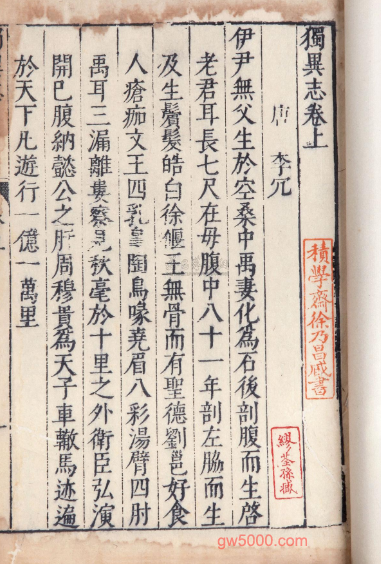 獨異志卷上
唐 李冗
伊尹無父生於空桑中禹妻化爲石後剖腹而生啓
老君耳長七尺在母腹中八十一年剖左脇而生
及生鬢髮皓白徐偃王無骨而有聖德劉邕好食
人瘡痂文王四乳皐陶鳥喙堯眉八彩湯臂四肘
禹耳三漏離婁察見秋毫於十里之外衛臣弘演
開巳腹納懿公之肝周穆貴爲天子車轍馬迹遍
於天下凡遊行一億一萬里
積學齋徐乃昌藏書
繆荃孫藏
gw5000.com